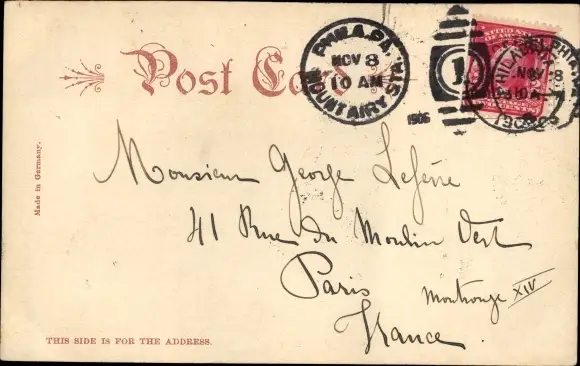 Post Card
PHILA.PA.
NOV 8
10 AM
MOUNT AIRY STA.
1906
1
PHILADELPHIA
NOV 8
1906
Made in Germany.
Monsieur George Lefèvre
41 Rue du Moulin Vert
Paris
Montrouge XIV
France
THIS SIDE IS FOR THE ADDRESS.